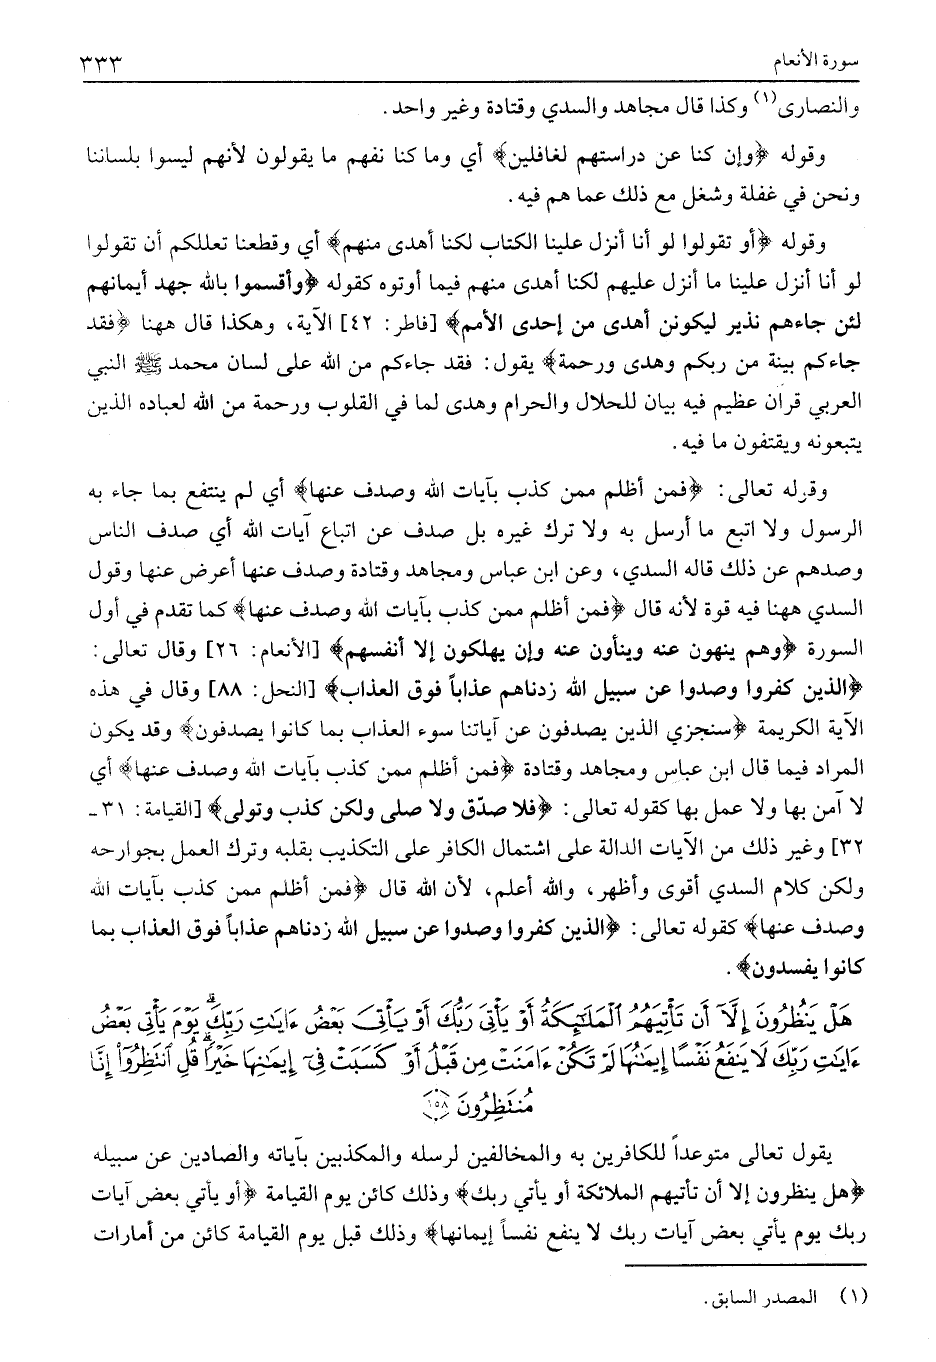 سورة الأنعام ٣٣٣
والنصارى(١) وكذا قال مجاهد والسدي وقتادة وغير واحد.
وقوله ﴿وإن كنا عن دراستهم لغافلين﴾ أي وما كنا نفهم ما يقولون لأنهم ليسوا بلساننا
ونحن في غفلة وشغل مع ذلك عما هم فيه.
وقوله ﴿أو تقولوا لو أنا أنزل علينا الكتاب لكنا أهدى منهم﴾ أي وقطعنا تعللكم أن تقولوا
لو أنا أنزل علينا ما أنزل عليهم لكنا أهدى منهم فيما أوتوه كقوله ﴿وأقسموا بالله جهد أيمانهم
لئن جاءهم نذير ليكونن أهدى من إحدى الأمم﴾ [فاطر: ٤٢] الآية، وهكذا قال ههنا ﴿فقد
جاءكم بينة من ربكم وهدى ورحمة﴾ يقول: فقد جاءكم من الله على لسان محمد ﷺ النبي
العربي قرآن عظيم فيه بيان للحلال والحرام وهدى لما في القلوب ورحمة من الله لعباده الذين
يتبعونه ويقتفون ما فيه.
وقوله تعالى: ﴿فمن أظلم ممن كذب بآيات الله وصدف عنها﴾ أي لم ينتفع بما جاء به
الرسول ولا اتبع ما أرسل به ولا ترك غيره بل صدف عن اتباع آيات الله أي صدف الناس
وصدهم عن ذلك قاله السدي، وعن ابن عباس ومجاهد وقتادة وصدف عنها أعرض عنها وقول
السدي ههنا فيه قوة لأنه قال ﴿فمن أظلم ممن كذب بآيات الله وصدف عنها﴾ كما تقدم في أول
السورة ﴿وهم ينهون عنه وينأون عنه وإن يهلكون إلا أنفسهم﴾ [الأنعام: ٢٦] وقال تعالى:
﴿الذين كفروا وصدوا عن سبيل الله زدناهم عذاباً فوق العذاب﴾ [النحل: ٨٨] وقال في هذه
الآية الكريمة ﴿سنجزي الذين يصدفون عن آياتنا سوء العذاب بما كانوا يصدفون﴾ وقد يكون
المراد فيما قال ابن عباس ومجاهد وقتادة ﴿فمن أظلم ممن كذب بآيات الله وصدف عنها﴾ أي
لا آمن بها ولا عمل بها كقوله تعالى: ﴿فلا صدّق ولا صلى ولكن كذب وتولى﴾ [القيامة: ٣١ ـ
٣٢] وغير ذلك من الآيات الدالة على اشتمال الكافر على التكذيب بقلبه وترك العمل بجوارحه
ولكن كلام السدي أقوى وأظهر، والله أعلم، لأن الله قال ﴿فمن أظلم ممن كذب بآيات الله
وصدف عنها﴾ كقوله تعالى: ﴿الذين كفروا وصدوا عن سبيل الله زدناهم عذاباً فوق العذاب بما
كانوا يفسدون﴾.
هَلْ يَنظُرُونَ إِلَّآ أَن تَأْتِيَهُمُ ٱلْمَلَٰٓئِكَةُ أَوْ يَأْتِىَ رَبُّكَ أَوْ يَأْتِىَ بَعْضُ ءَايَٰتِ رَبِّكَ ۗ يَوْمَ يَأْتِى بَعْضُ
ءَايَٰتِ رَبِّكَ لَا يَنفَعُ نَفْسًا إِيمَٰنُهَا لَمْ تَكُنْ ءَامَنَتْ مِن قَبْلُ أَوْ كَسَبَتْ فِىٓ إِيمَٰنِهَا خَيْرًا ۗ قُلِ ٱنتَظِرُوٓا۟ إِنَّا
مُنتَظِرُونَ ١٥٨
يقول تعالى متوعداً للكافرين به والمخالفين لرسله والمكذبين بآياته والصادين عن سبيله
﴿هل ينظرون إلا أن تأتيهم الملائكة أو يأتي ربك﴾ وذلك كائن يوم القيامة ﴿أو يأتي بعض آيات
ربك يوم يأتي بعض آيات ربك لا ينفع نفساً إيمانها﴾ وذلك قبل يوم القيامة كائن من أمارات
(١) المصدر السابق.